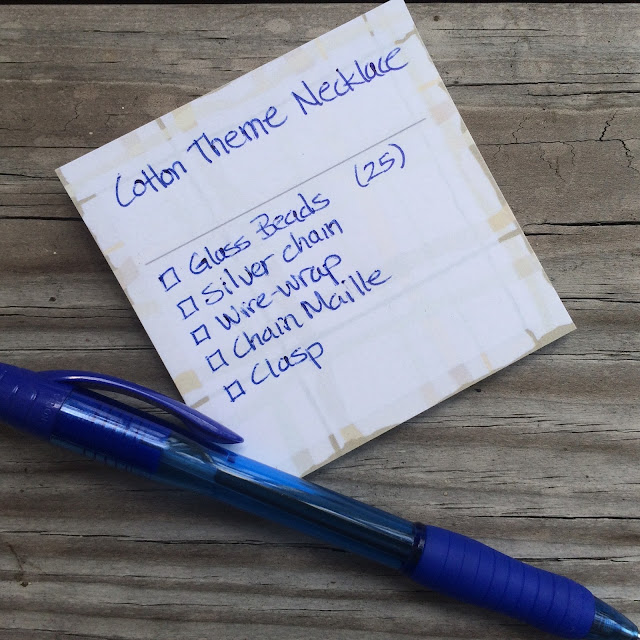 Cotton Theme Necklace
Glass Beads (25)
Silver chain
Wire-wrap
Chain Maille
Clasp